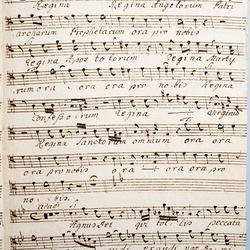 Regina Regina Angelorum Patri
archarum Prophetarum ora pro nobis
Regina Apostolorum Regina Marty
rum ora ora ora pro nobis Regina
Confessorum Regina Virginum
Regina Sanctorum omnium ora ora
ora pro nobis ora ora ora pro
nobis
Agnus Dei qui tollis peccata